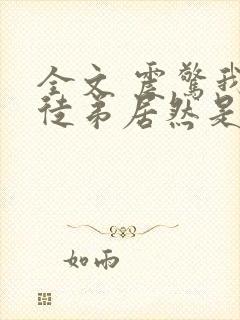 全文 震惊我
徒弟居然是
如雨